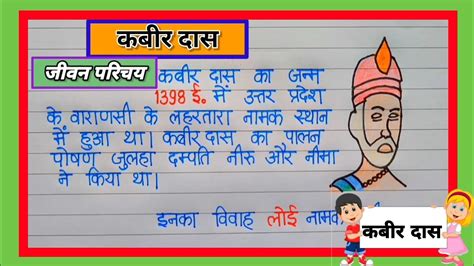 कबीर दास
जीवन परिचय
कबीर दास का जन्म
1398 ई. में उत्तर प्रदेश
के वाराणसी के लहरतारा नामक स्थान
में हुआ था। कबीर दास का पालन
पोषण जुलहा दम्पति नीरू और नीमा
ने किया था।
इनका विवाह लोई नामक
कबीर दास